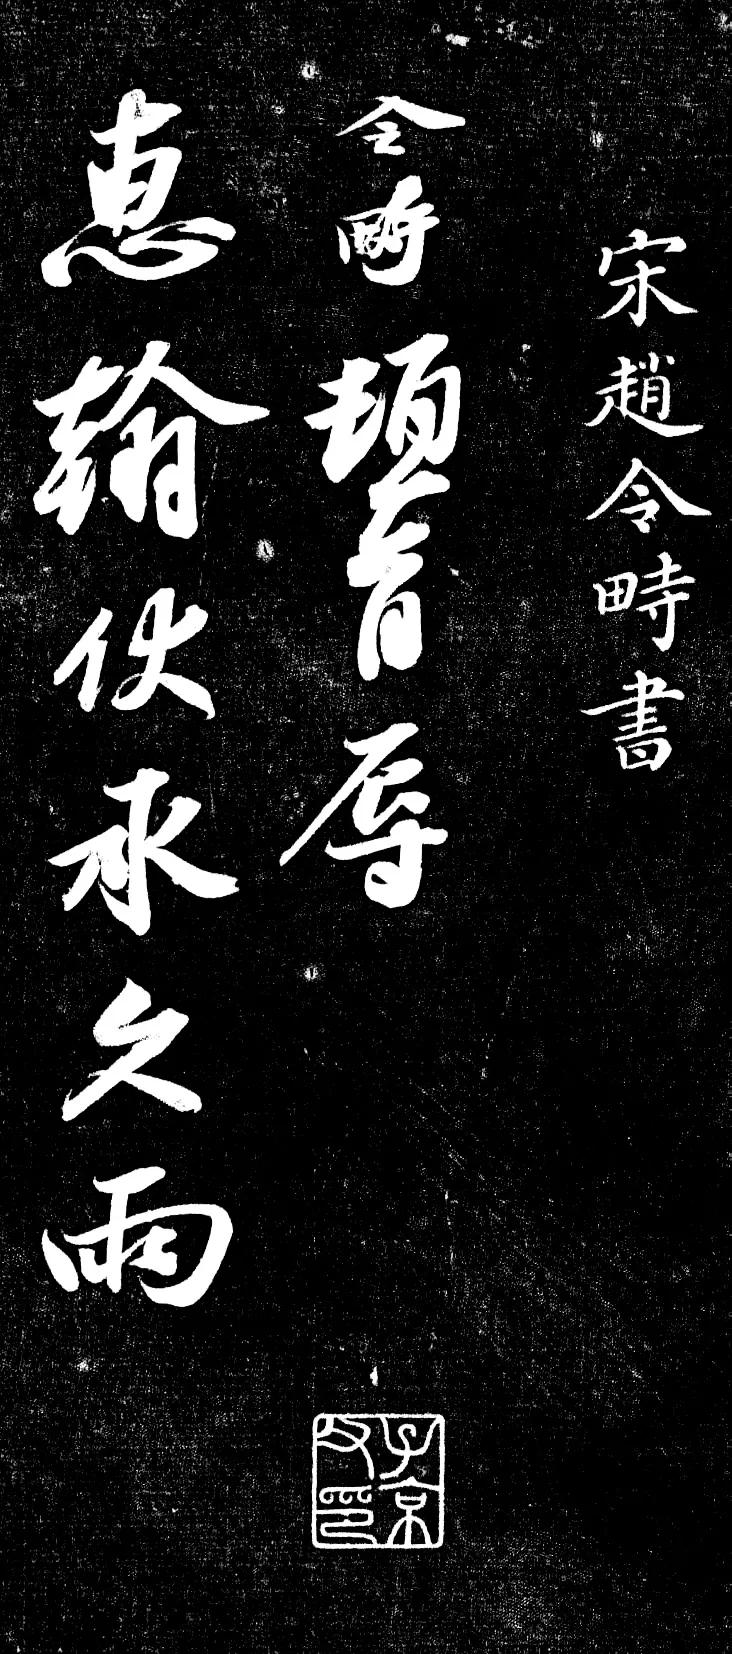 宋趙令畤書
令畤頓首辱
惠翰伏承久雨
子京
父印